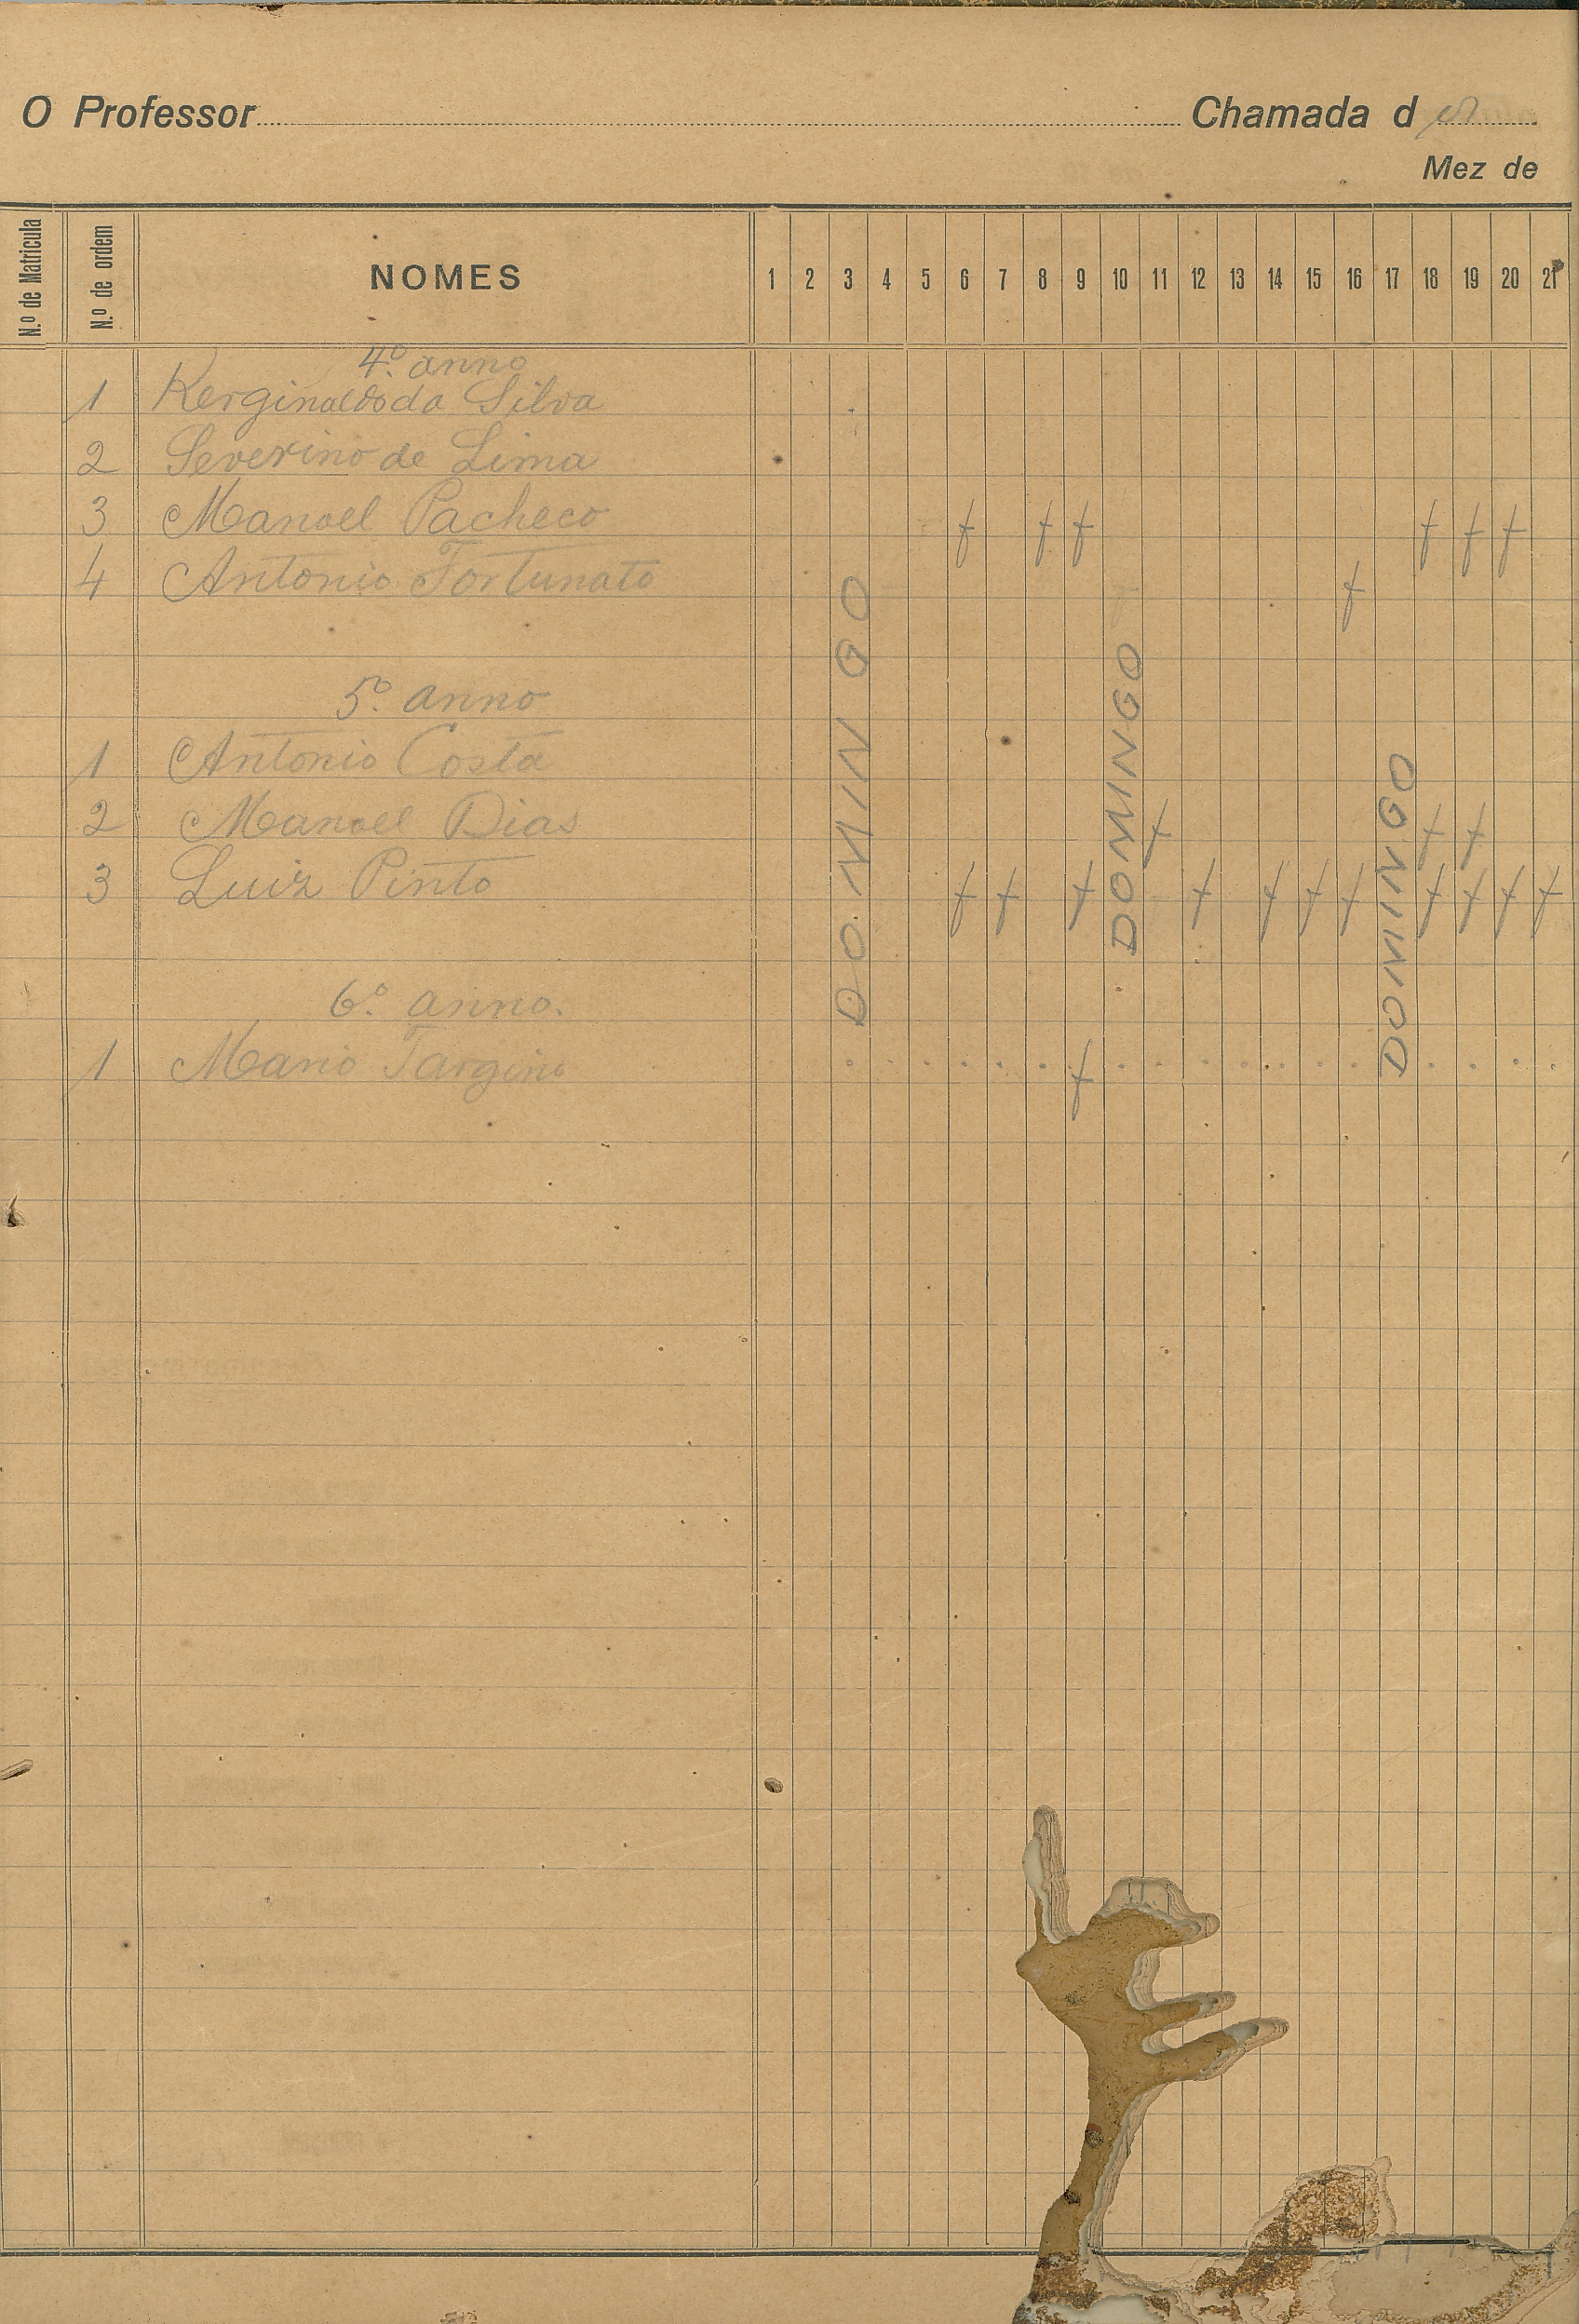 O Professor Chamada d
Mez de
N.º de Matricula N.º de ordem NOMES 1 2 3 4 5 6 7 8 9 10 11 12 13 14 15 16 17 18 19 20 21
4º anno
1 Kerginaldo da Silva
2 Severino de Lima
3 Manoel Pacheco f f f f f f
4 Antonio Fortunato f
5º anno
1 Antonio Costa
2 Manoel Dias f f f
3 Luiz Pinto f f f f f f f f f f f
6º anno.
1 Mario Targino f
DOMINGO
DOMINGO
DOMINGO